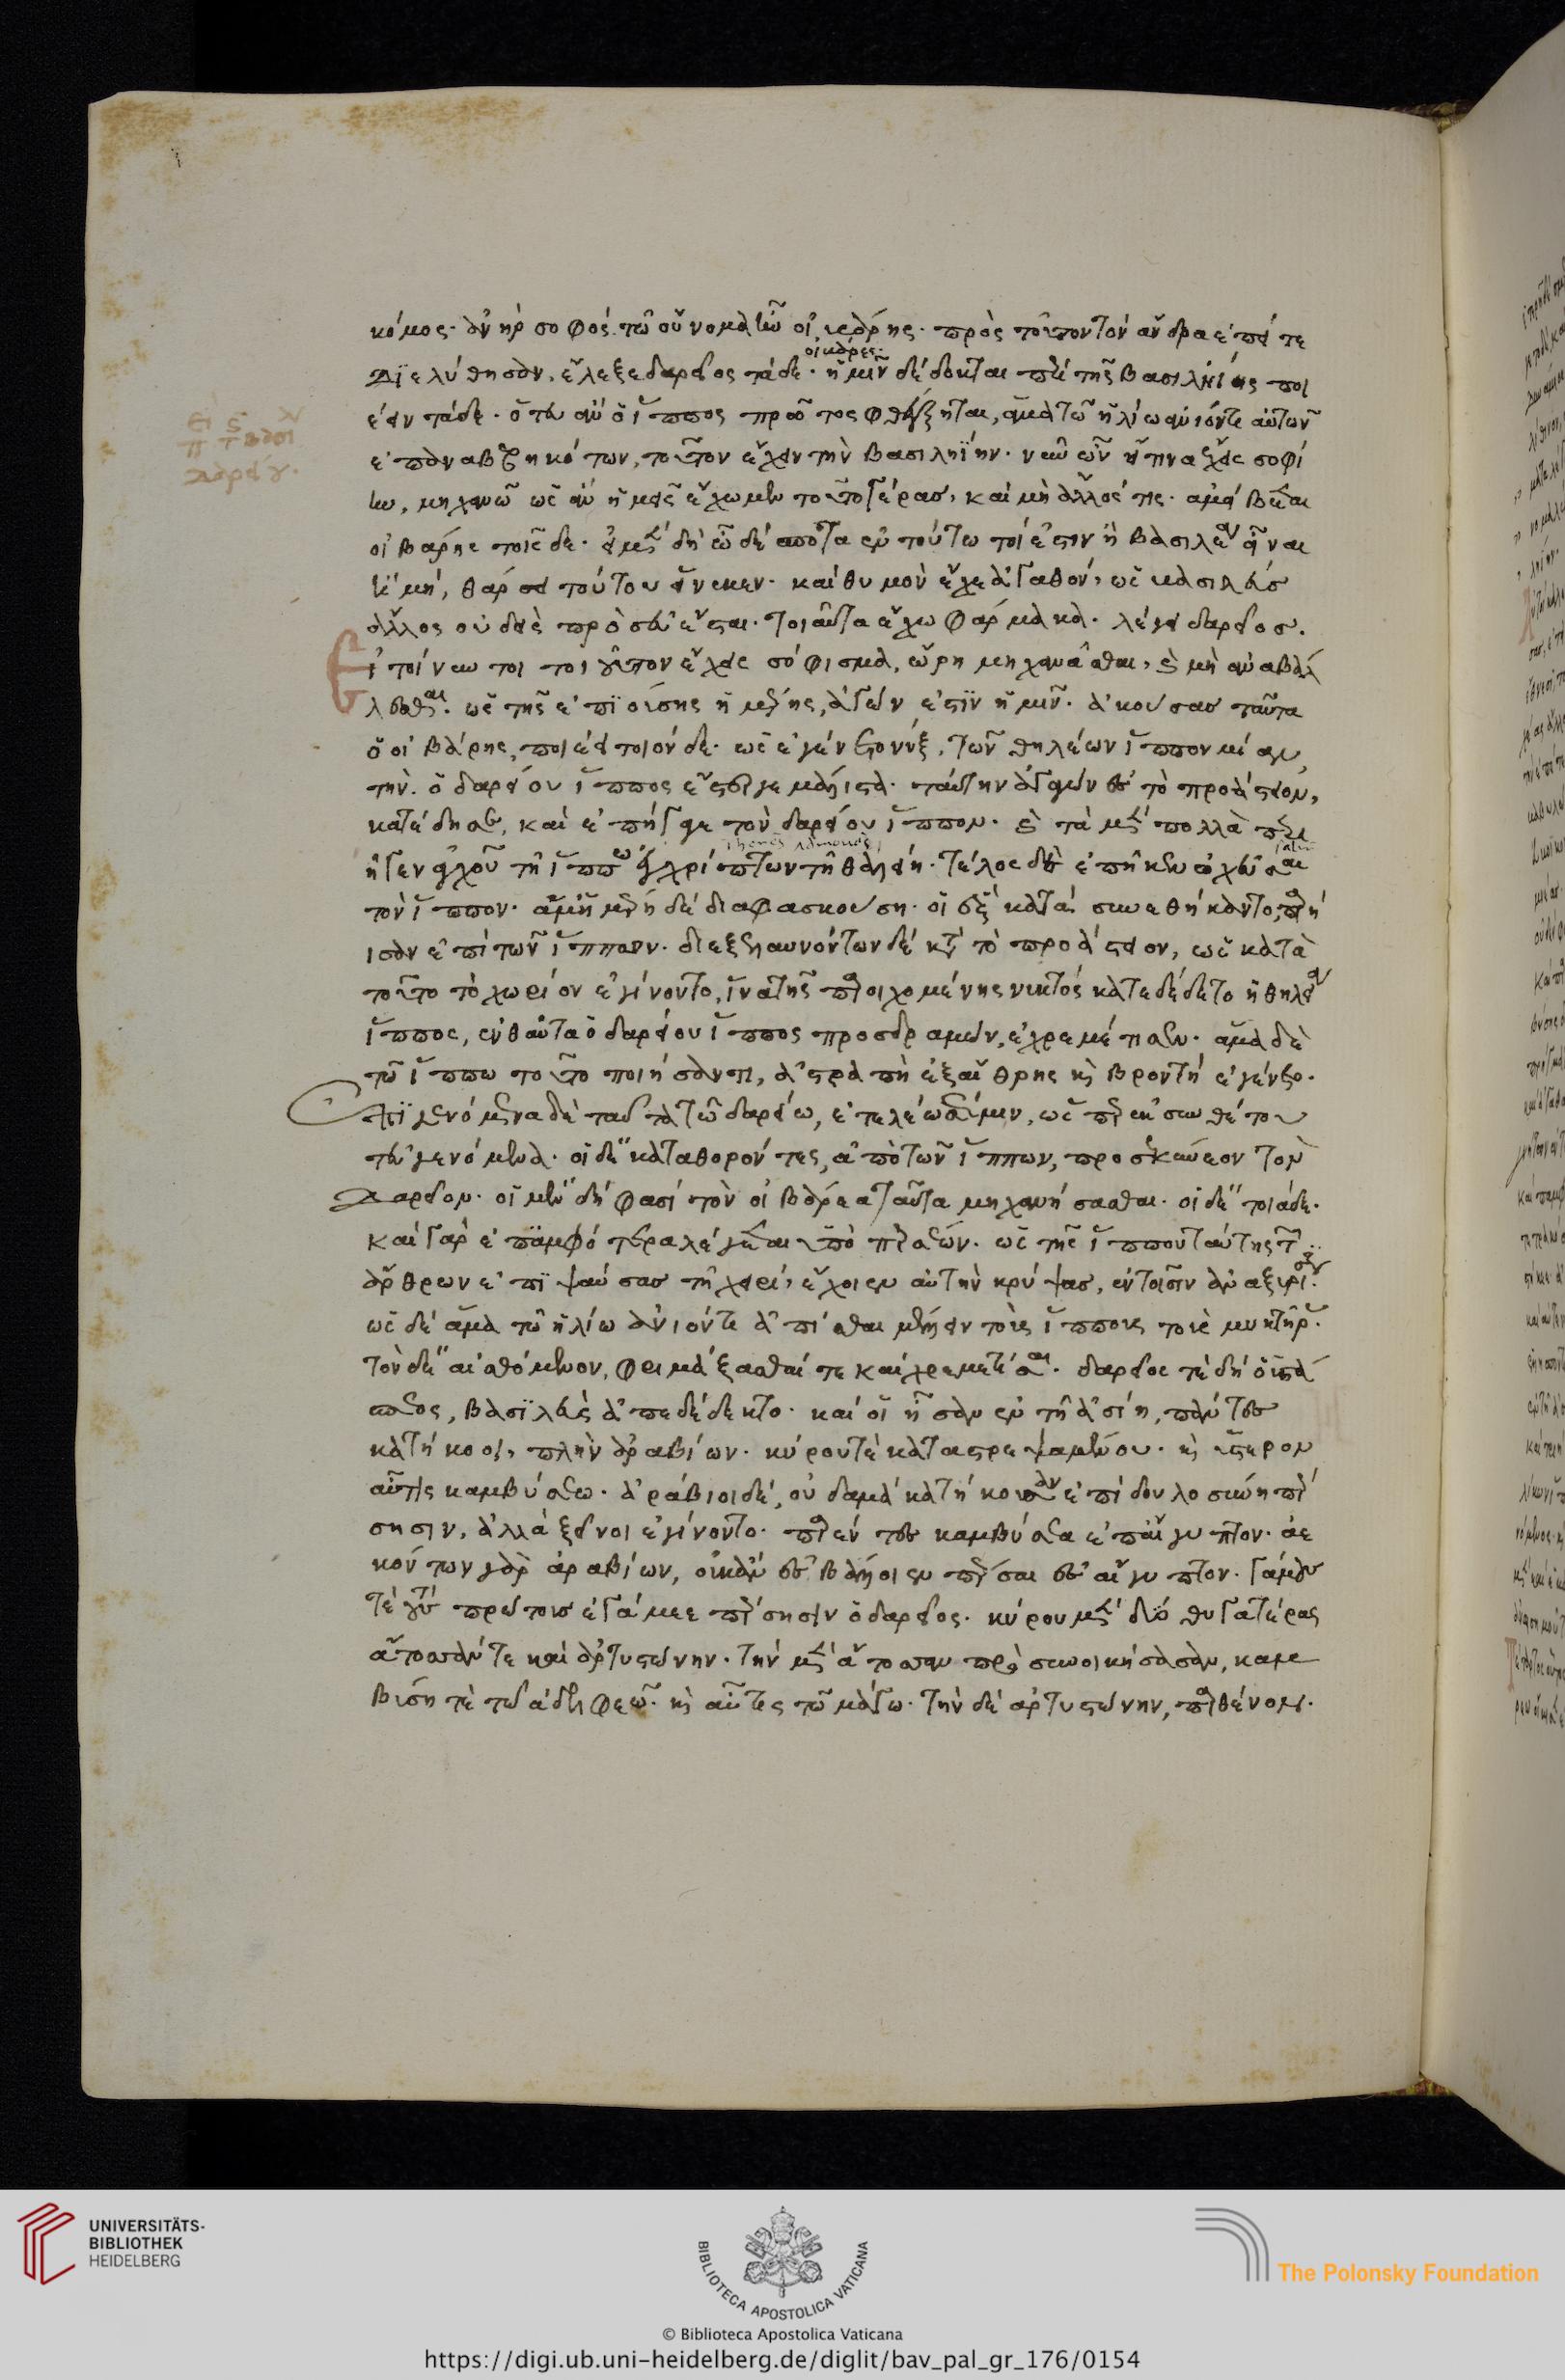 κόμος· ἀνὴρ σοφός· τῶ οὔνομα ἦν οἰβάρης· πρὸς τοῦτον τὸν ἄνδρα ἐπεί τε
διελύθησαν, ἔλεξε δαρεῖος τάδε· οἴβαρες· ἡμῖν δέδοκται περὶ τῆς βασιληίης ποι
έειν τάδε· ὅτευ ἂν ὁ ἵππος πρῶτος φθέγξηται, ἅμα τῶ ἡλίω ἀνιόντι αὐτῶν
ἐπαναβεβηκότων, τοῦτον ἔχειν τὴν βασιληΐην· νῦν ὦν εἴ τινα ἔχεις σοφί
ην, μηχανῶ ὡς ἂν ἡμεῖς σχῶμεν τοῦτο γέρας, καὶ μὴ ἄλλός τις· ἀμείβεται
οἰβάρης τοῖσδε· εἰ μὲν δὴ ὦ δέσποτα ἐν τούτω τοί ἐστιν ἢ βασιλέα εἶναι
ἢ μή, θάρσει τούτου εἵνεκεν· καὶ θυμὸν ἔχε ἀγαθόν, ὡς βασιλεὺς
ἄλλος οὐδεὶς πρὸ σεῦ ἔσται· τοιαῦτα ἔχω φάρμακα· λέγει δαρεῖος·
Εἰ τοίνυν τι τοιοῦτον ἔχεις σόφισμα, ὥρη μηχανᾶσθαι, καὶ μὴ ἀναβάλ
λεσθαι· ὡς τῆς ἐπϊούσης ἡμέρης, ἀγών ἐστϊν ἡμῖν· ἀκούσας ταῦτα
ὁ οἰβάρης, ποιέει τοιόνδε· ὡς ἐγένετο νύξ, τῶν θηλέων ἵππων μίαν,
τὴν ὁ δαρείου ἵππος ἔστεργε μάλιστα· ταύτην ἀγαγὼν ἐς τὸ προάστειον,
κατέδησε, καὶ ἐπήγαγε τὸν δαρείου ἵππον· καὶ τὰ μὲν πολλὰ περι
ῆγεν ἀγχοῦ τῆ ἵππω ἐγχρίπτων τῆ θηλείη· τέλος δὲ ἐπῆκεν ὀχεῦσαι
τὸν ἵππον· ἅμ' ἡμέρη δὲ διαφασκούση· οἱ ἓξ κατὰ συνεθήκαντο, παρή
ισαν ἐπὶ τῶν ἵππων· διεξελαυνόντων δὲ κατὰ τὸ προάστειον, ὡς κατὰ
τοῦτο τὸ χωρίον ἐγίνοντο, ἵνα τῆς παροιχομένης νυκτὸς κατεδέδετο ἡ θήλεα
ἵππος, ἐνθαῦτα ὁ δαρείου ἵππος προσδραμών, ἐχρεμέτισεν· ἅμα δὲ
τῶ ἵππω τοῦτο ποιήσαντι, ἀστραπὴ ἐξ αἴθρης καὶ βροντὴ ἐγένετο·
Ἐπϊγενόμενα δὲ ταῦτα τῶ δαρείω, ἐτελέωσέ μιν, ὥσπερ ἐκ συνθέτου
τευ γενόμενα· οἱ δὲ καταθορόντες ἀπὸ τῶν ἵππων, προσεκύνεον τὸν
Δαρεῖον· οἱ μὲν δή φασι τὸν οἰβάρεα ταῦτα μηχανήσασθαι· οἱ δὲ τοιάδε·
καὶ γὰρ ἐπ' ἀμφότερα λέγεται ὑπὸ περσέων· ὡς τῆς ἵππου ταύτης τῶν
ἄρθρων ἐπϊψαύσας τῆ χειρί, ἔχοι αὐτὴν κρύψας, ἐν τοῖσιν ἀναξυρίσι·
ὡς δὲ ἅμα τῶ ἡλίω ἀνιόντι ἀπίεσθαι μέλλειν τοὺς ἵππους
τὸν δὲ αἰσθόμενον, φριμάξασθαί τε καὶ χρεμετίσαι· δαρεῖός τε δὴ ὁ ὑστά
σπεος, βασϊλεὺς ἀπεδέδεκτο· καί οἱ ἦσαν ἐν τῆ ἀσίη, πάντες
κατήκοοι, πλὴν ἀραβίων· κύρου τε καταστρεψαμένου· καὶ ὕστερον
αὖτις καμβύσεω· ἀράβιοι δέ, οὐδαμὰ κατήκουσαν ἐπὶ δουλοσύνη πέρ
σησιν, ἀλλὰ ξεῖνοι ἐγίνοντο· παρέντες καμβύσεα ἐπ' αἴγυπτον· ἀε
κόντων γὰρ ἀραβίων, οὐκ ἂν ἐσβάλοιεν πέρσαι ἐς αἴγυπτον· γάμους
τε τοὺς πρώτους ἐγάμεε πέρσησιν ὁ δαρεῖος· κύρου μὲν δύο θυγατέρας
ἄτοσσάν τε καὶ ἀρτυστώνην· τὴν μὲν ἄτοσσαν προσυνοικήσασαν, καμ
βύση τε τῶ ἀδελφεῶ· καὶ αὖτις τῶ μάγω· τὴν δὲ ἀρτυστώνην, παρθένον·
UNIVERSITÄTS-
BIBLIOTHEK
HEIDELBERG
BIBLIOTECA APOSTOLICA VATICANA
The Polonsky Foundation
© Biblioteca Apostolica Vaticana
https://digi.ub.uni-heidelberg.de/diglit/bav_pal_gr_176/0154